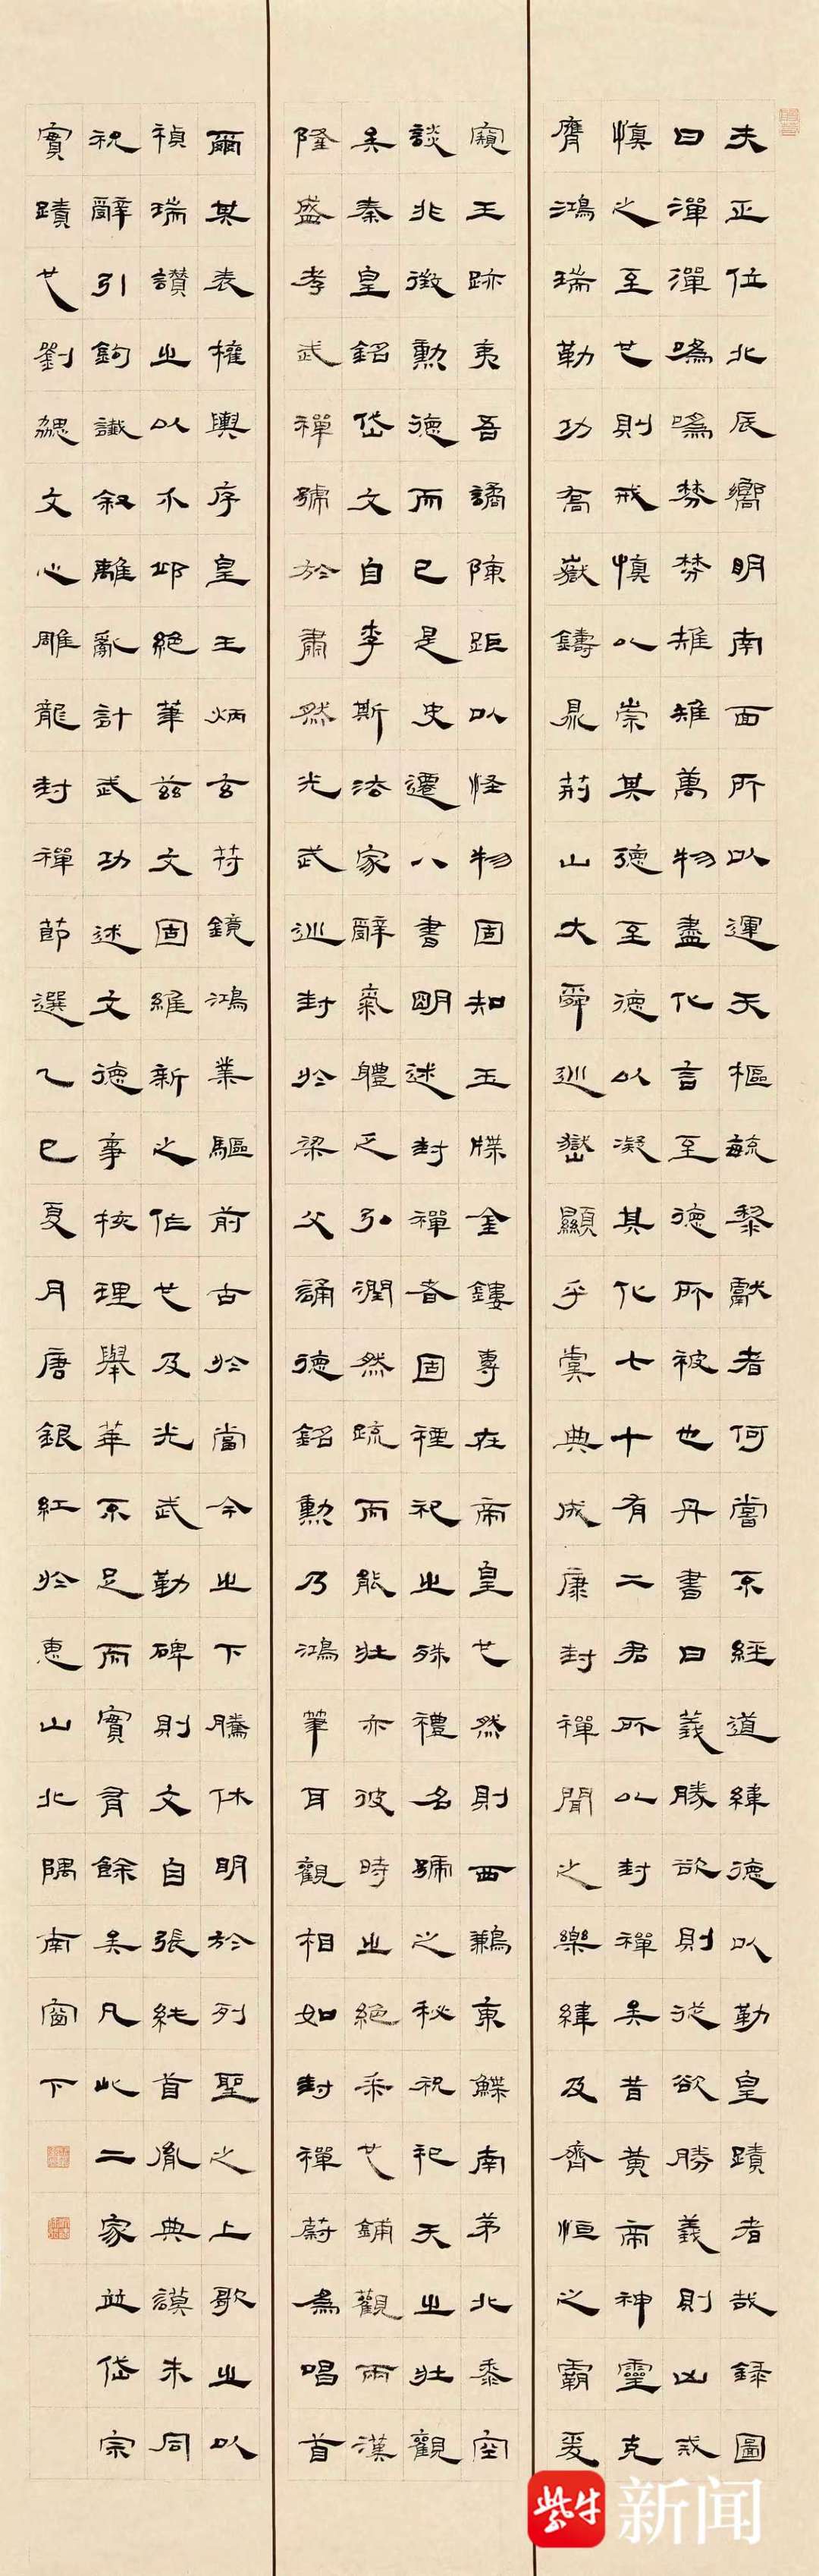 夫正位北辰嚮明南面所以運天樞毓黎獻者何嘗不經道緯德以勒皇蹟者哉錄圖
曰潬潬噅噅棼棼雉雉萬物盡化言至德所被也丹書曰義勝欲則從欲勝義則凶戒
慎之至也則戒慎以崇其德至德以凝其化七十有二君所以封禪矣昔黃帝神靈克
膺鴻瑞勒功喬嶽鑄鼎荊山大舜巡嶽顯乎虞典成康封禪聞之樂緯及齊恒之霸爰
窺王跡夷吾譎陳距以怪物固知玉牒金鏤專在帝皇也然則西鶼東鰈南茅北黍空
談非徵勳德而已是史遷八書明述封禪者固禋祀之殊禮名號之秘祝祀天之壯觀
矣秦皇銘岱文自李斯法家辭氣體乏弘潤然疏而能壯亦彼時之絕采也鋪觀兩漢
隆盛孝武禪號於肅然光武巡封於梁父誦德銘勳乃鴻筆耳觀相如封禪蔚為唱首
爾其表權輿序皇王炳玄符鏡鴻業驅前古於當今之下騰休明於列聖之上歌之以
禎瑞讚之以介邱絕筆茲文固維新之作也及光武勒碑則文自張純首胤典謨末同
祝辭引鉤讖叙離亂計武功述文德事核理舉華不足而實有餘矣凡此二家並岱宗
實蹟也劉勰文心雕龍封禪節選乙巳夏月唐銀紅於惠山北隅南窗下
紫牛新闻